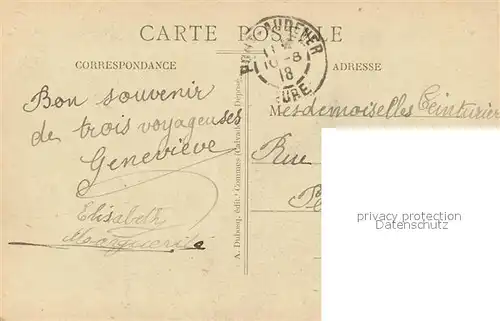 CARTE POSTALE
PONT-AUDEMER
10-8
18
EURE
CORRESPONDANCE
ADRESSE
Bon souvenir
de trois voyageuses
Geneviève
Elisabeth
Marguerite
A. Dubosq, édit. Commes (Calvados) Déposé.
Mesdemoiselles Teinturier
Rue
privacy protection
Datenschutz